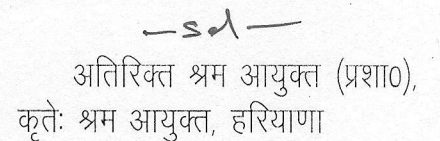 —sd—
अतिरिक्त श्रम आयुक्त (प्रशा0),
कृतेः श्रम आयुक्त, हरियाणा